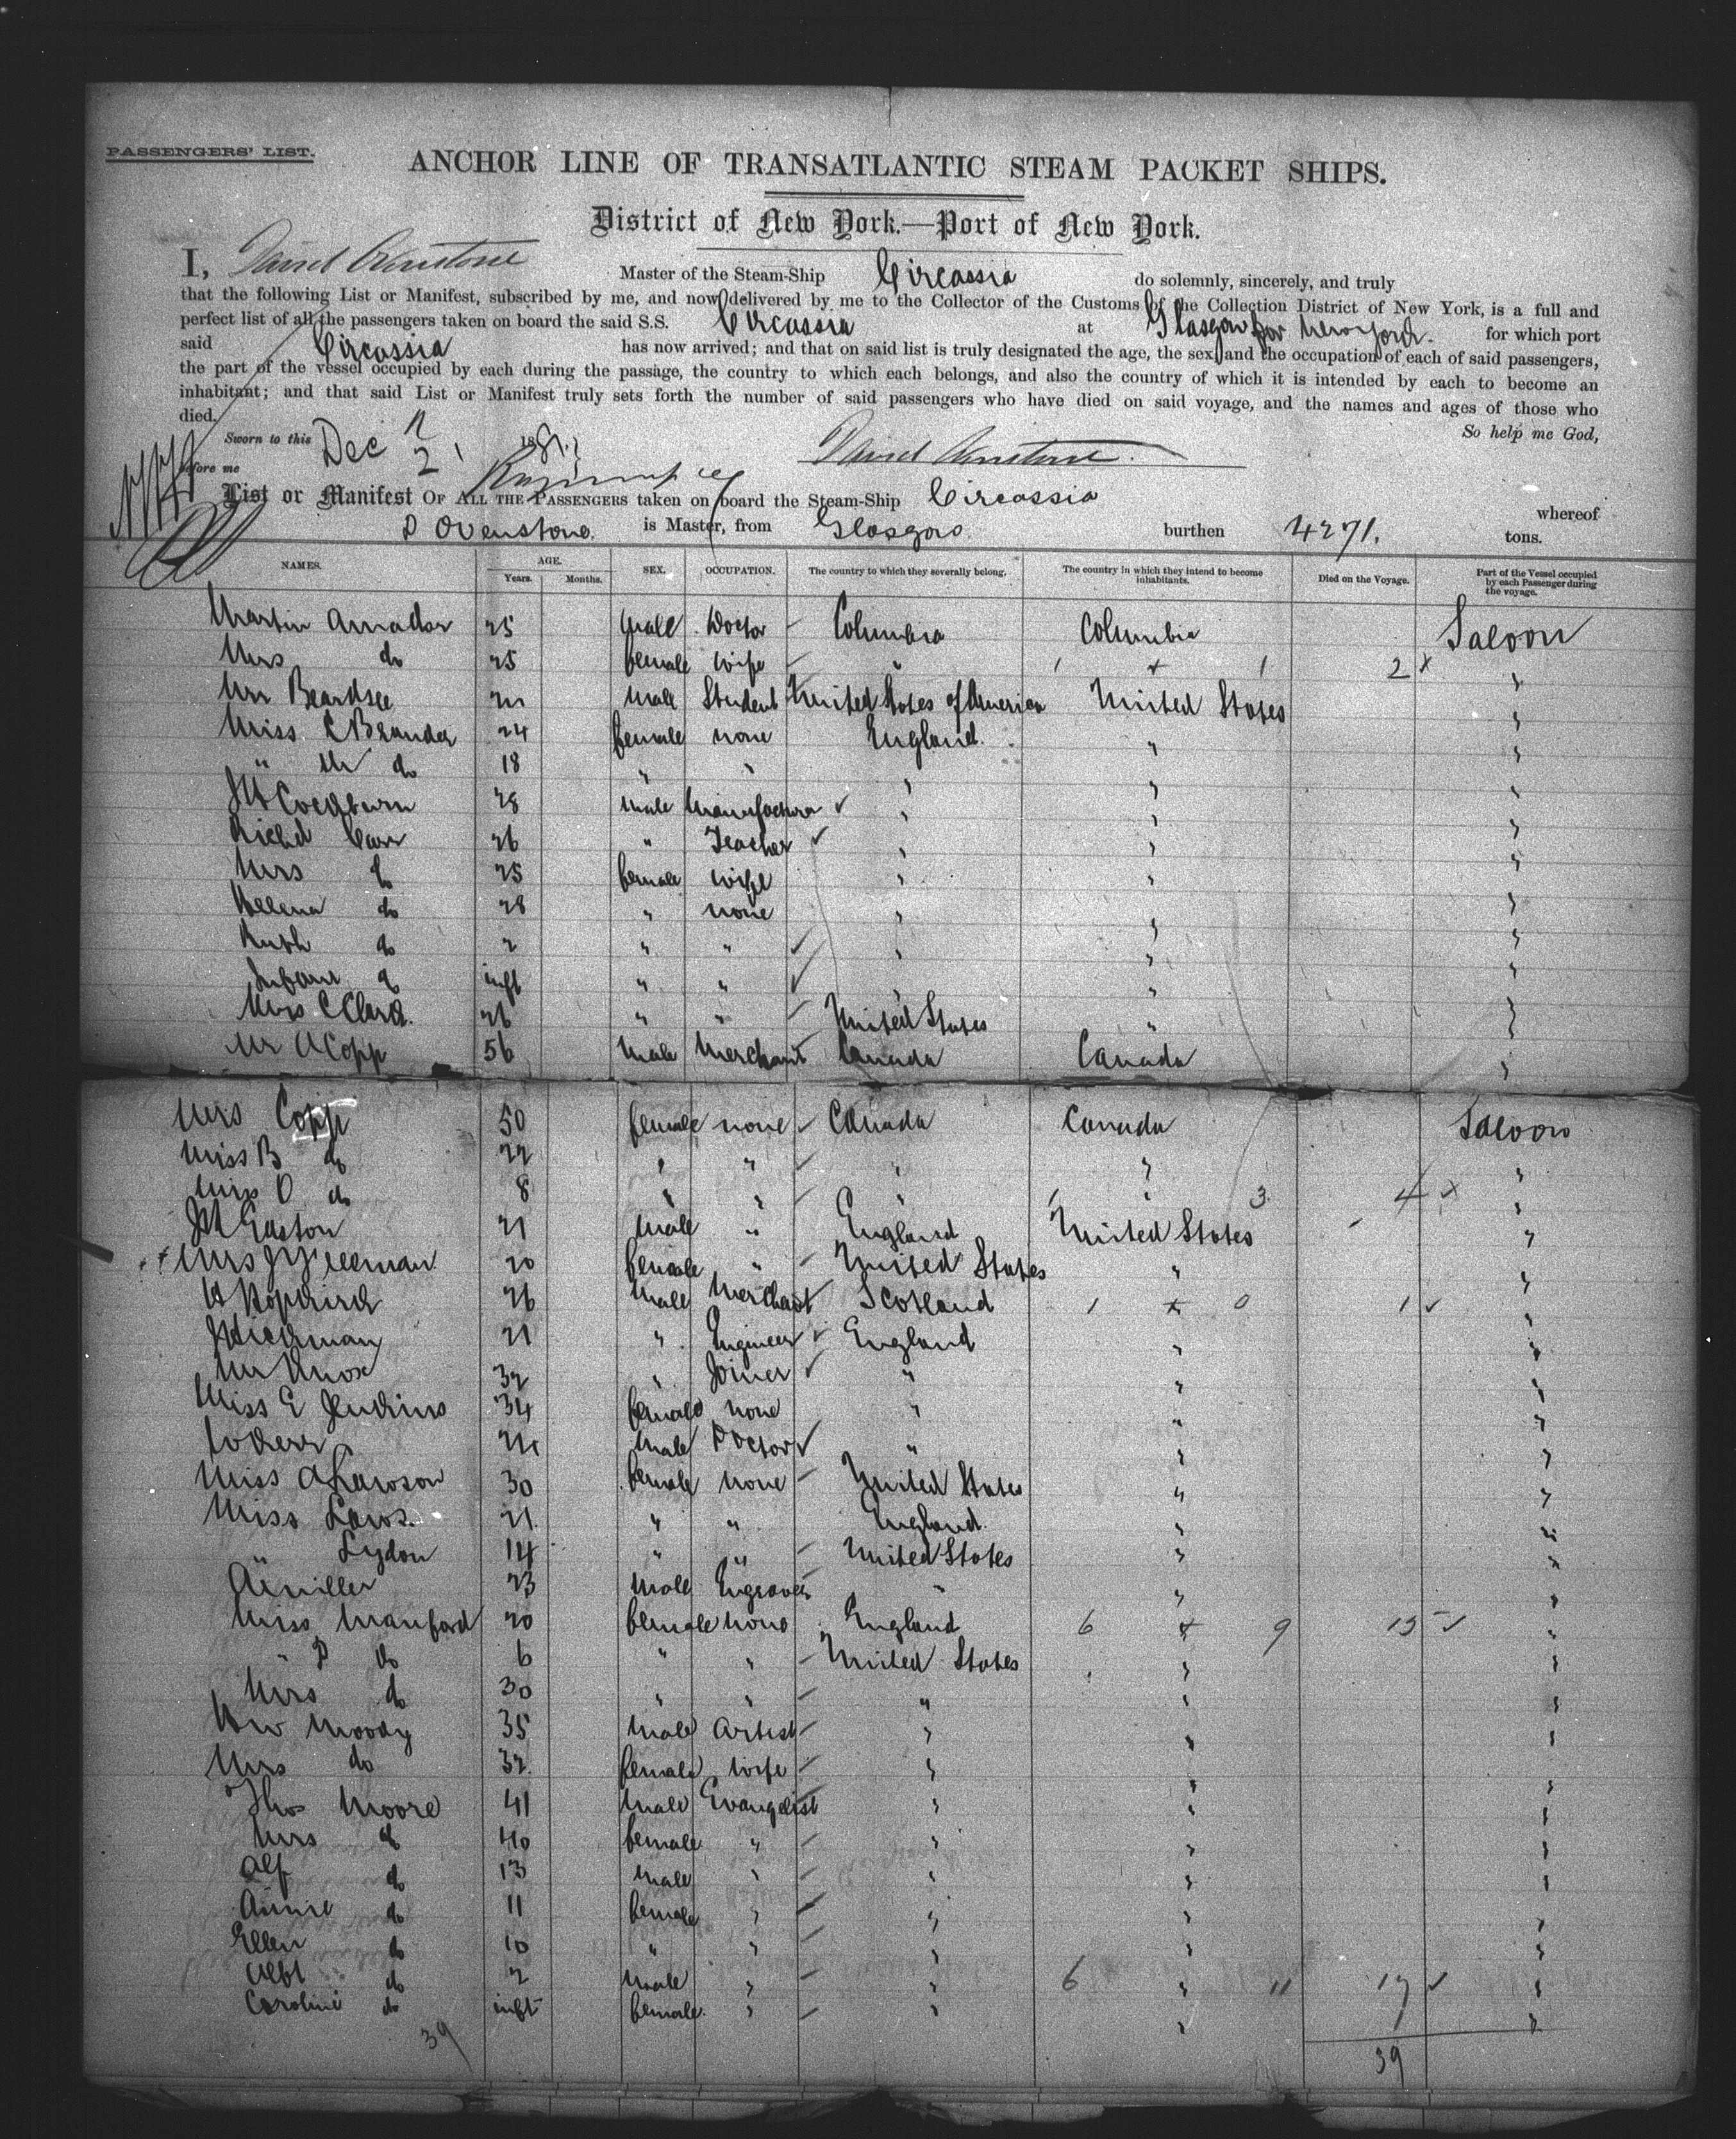 PASSENGERS' LIST.
ANCHOR LINE OF TRANSATLANTIC STEAM PACKET SHIPS.
District of New York.—Port of New York.
I, David Ovenstone Master of the Steam-Ship Circassia do solemnly, sincerely, and truly
that the following List or Manifest, subscribed by me, and now delivered by me to the Collector of the Customs of the Collection District of New York, is a full and
perfect list of all the passengers taken on board the said S.S. Circassia at Glasgow for New York. for which port
said Circassia has now arrived; and that on said list is truly designated the age, the sex, and the occupation of each of said passengers,
the part of the vessel occupied by each during the passage, the country to which each belongs, and also the country of which it is intended by each to become an
inhabitant; and that said List or Manifest truly sets forth the number of said passengers who have died on said voyage, and the names and ages of those who
died. So help me God,
Sworn to this Dec 2 1881. David Ovenstone.
before me
List or Manifest OF ALL THE PASSENGERS taken on board the Steam-Ship Circassia whereof
D Ovenstone. is Master, from Glasgow. burthen 4271. tons.
NAMES. AGE. Years. Months. SEX. OCCUPATION. The country to which they severally belong. The country in which they intend to become inhabitants. Died on the Voyage. Part of the Vessel occupied by each Passenger during the voyage.
Martin Amador 25 male Doctor Columbia Columbia Saloon
Mrs do 25 female wife " 1 + 1 2 x "
Mr Beardsee male Student United States of America United States "
Miss C Brander 24 female none England. " "
" M do 18 " " " " "
Cockburn 28 male Manufacturer ✓ " " "
Richd Carr 26 " Teacher ✓ " " "
Mrs do 25 female wife " " "
Hellena do 28 " none " " "
Ruth do 2 " " ✓ " " "
Infant do inft " " ✓ " " "
Mrs C Clark. 26 " " United States " "
Mr A Copp 56 male Merchant Canada Canada "
Mrs Copp 50 female none Canada Canada Saloon
Miss B do 22 " " " " "
Miss O do 8 " " " 1 " 3 4 x "
Easton 21 male " England United States "
Mrs 20 female " United States " "
H Hopkirk 26 male Merchant Scotland 1 + 0 1 ✓ "
Hickman 21 " Engineer ✓ England " "
Mr Knox 32 " Joiner ✓ " " "
Miss E Jenkins 34 female none " " "
Kerr 24 male Doctor ✓ " " "
Miss A Lawson 30 female none United States " "
Miss Laws. 21. " " England. " "
" Lydon 14 " " United States " "
A Miller 23 male Engraver " " "
Miss Manford 20 female none England 6 + 9 15 ✓ "
" P do 6 " " United States " "
Mrs do 30 " " " " "
Moody 35 male Artist " " "
Mrs do 32. female wife " " "
Thos Moore 41 male Evangelist " " "
Mrs do 40 female " " " "
Alf do 13 male " " " "
Annie do 11 female " " " "
Ellen do 10 " " " " "
Albt do 2 male " " 6 " 11 17 ✓ "
Caroline do inft female. " " " "
39 39